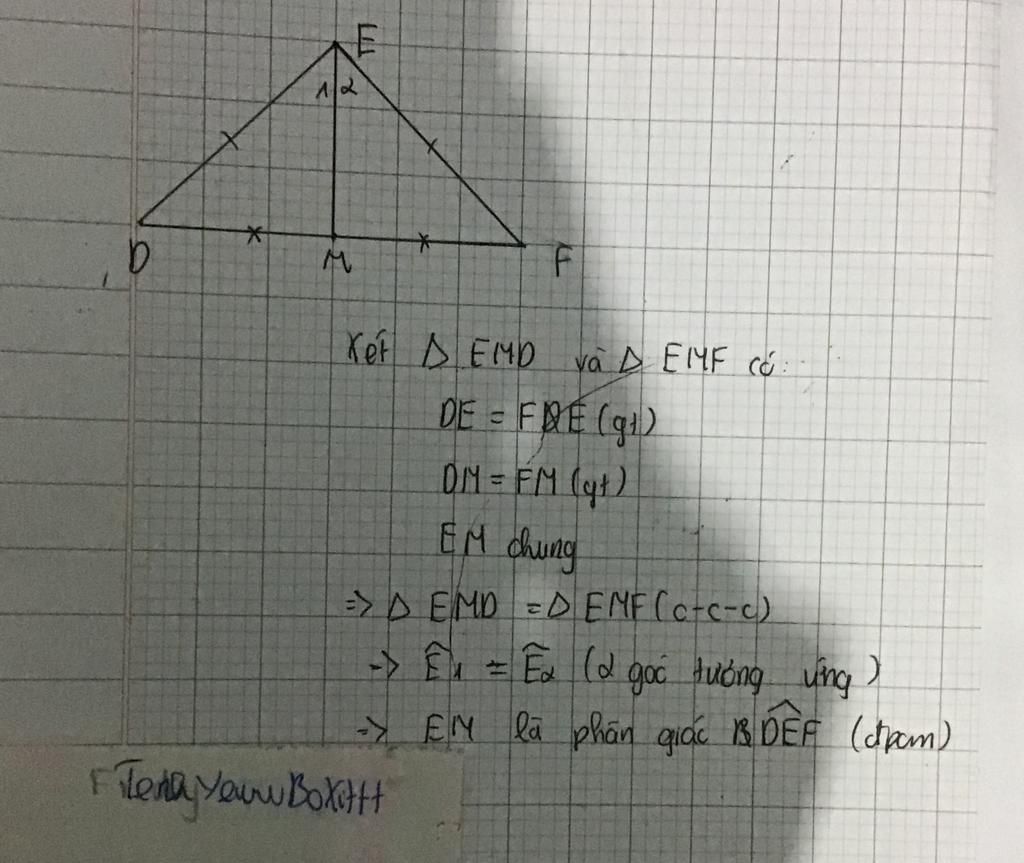 E
1 2
D M F
Xét Δ EMD và Δ EMF có:
DE = FE (gt)
DM = FM (gt)
EM chung
=> Δ EMD = Δ EMF (c-c-c)
-> Ê1 = Ê2 (2 góc tương ứng)
-> EM là phân giác DÊF (đpcm)